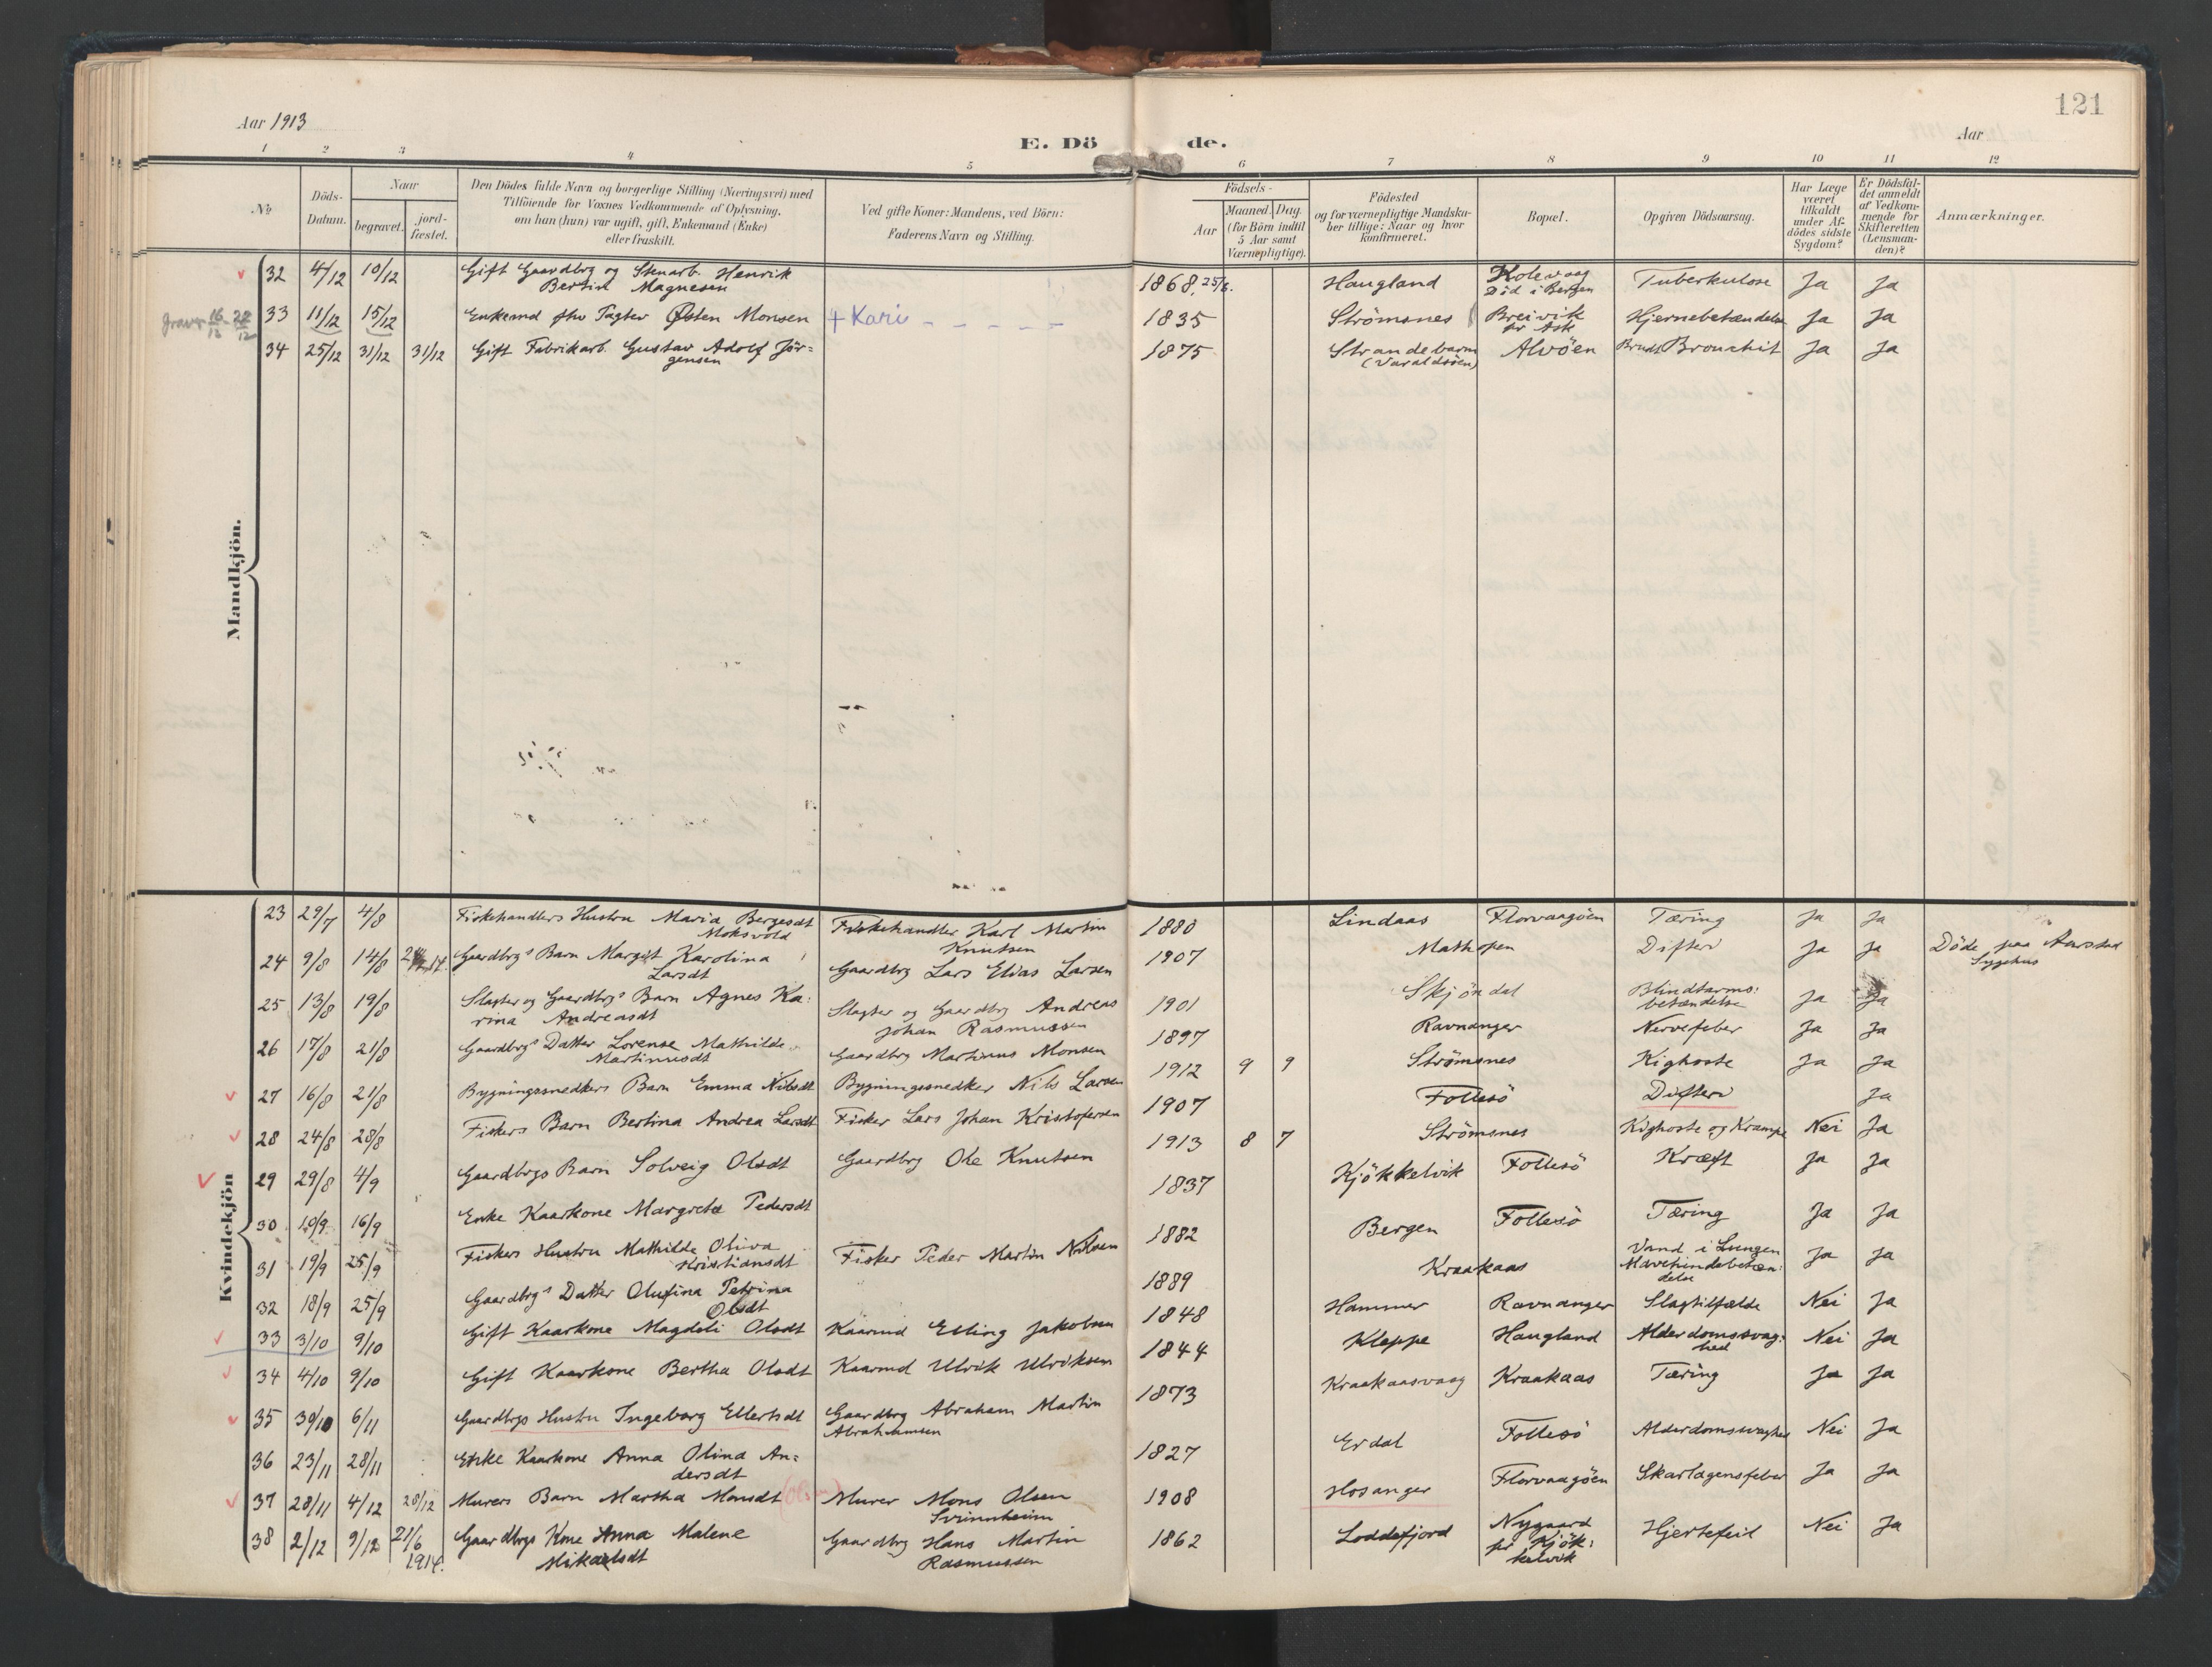 121
Aar 1913
Aar
E. Dö de.
1 2 3 4 5 6 7 8 9 10 11 12
No
Döds-
Datum.
Naar
begravet.
jord-
fæstet.
Den Dödes fulde Navn og borgerlige Stilling (Næringsvei) med
Tilföiende for Voxnes Vedkommende af Oplysning,
om han (hun) var ugift, gift, Enkemand (Enke)
eller fraskilt.
Ved gifte Koner: Mandens, ved Börn:
Faderens Navn og Stilling.
Födsels-
Aar
Maaned. Dag.
(for Börn indtil
5 Aar samt
Værnepligtige).
Födested
og for værnepligtige Mandska-
ber tillige: Naar og hvor
konfirmeret.
Bopæl.
Opgiven Dödsaarsag.
Har Læge
været
tilkaldt
under Af-
dödes sidste
Sygdom?
Er Dödsfal-
det anmeldt
af Vedkom-
mende for
Skifteretten
(Lensman-
den)?
Anmærkninger.
Mandkjön.
32 4/12 10/12 Gift Gaardbrg og Stenarb. Henrik
Bertin Magnesen
1868 25/6. Haugland Kolevaag
Död i Bergen
Tuberkulose Ja Ja
33 11/12 15/12 Enkemd fhv Tagtev Østen Monsen + Kari 1835 Strömsnes Breivik
pr Ask
Hjernebetændelse Ja Ja
34 25/12 31/12 31/12 Gift Fabrikarb. Gustav Adolf Jör=
gensen
1875 Strandebarm
(Varaldsöen)
Alvöen Bronchit Ja Ja
Kvindekjön
23 29/7 4/8 Fiskehandlers Hustru Maria Bergesdt
Moksvold
Fiskehandler Karl Martin
Knutsen
1880 Lindaas Florvaagöen Tæring Ja Ja
24 9/8 14/8 Gaardbrgs Barn Margit Karolina
Larsdt
Gaardbrg Lars Elias Larsen
1907 Mathopen Difteri Ja Ja Döde paa Aarstad
Sygehus
25 13/8 19/8 Slagter og Gaardbrgs Barn Agnes Ka:
rina Andreasdt
Slagter og Gaardbrg Andreas
Johan Rasmussen
1901 Skjöndal Blindtarms:
betændelse
Ja Ja
26 17/8 21/8 Gaardbrgs Datter Lorense Mathilde
Martinusdt
Gaardbrg Martinus Monsen
1897 Ravnanger Nervefeber Ja Ja
27 16/8 21/8 Bygningssnedkers Barn Emma Nilsdt Bygningssnedker Nils Larsen 1912 9 9 Strömsnes Kighoste Ja Ja
28 24/8 28/8 Fiskers Barn Bertina Andrea Larsdt Fisker Lars Johan Kristofersen 1907 Follesö Difteri Ja
29 29/8 4/9 Gaardbrgs Barn Solveig Olsdt Gaardbrg Ole Knutsen 1913 8 7 Strömsnes Kighoste og Krampe Nei Ja
30 10/9 16/9 Enke Kaarkone Margrete Pedersdt 1837 Kjökkelvik Follesö Kræft Ja Ja
31 19/9 25/9 Fiskers Hustru Mathilde Oliva
Kristiansdt
Fisker Peder Martin Nilsen
1882 Bergen Follesö Tæring Ja Ja
32 18/9 25/9 Gaardbrgs Datter Olufina Petrina
Olsdt
1889 Kraakaas Vand i Lungen
Mavehindebetæn:
delse
Ja Ja
33 3/10 9/10 Gift Kaarkone Magdeli Olsdt Kaarmd Elling Jakobsen 1848 Hammer Ravnanger Slagtilfælde Nei Ja
34 4/10 9/10 Gift Kaarkone Bertha Olsdt Kaarmd Ulrik Ulriksen 1844 Kleppe Haugland Alderdomssvag:
hed
Nei Ja
35 30/10 6/11 Gaardbrgs Hustru Ingeborg Ellertsdt Gaardbrg Abraham Martin
Abrahamsen
1873 Kraakaasvaag Kraakaas Tæring Ja Ja
36 23/11 28/11 Enke Kaarkone Anna Olina An=
dersdt
1827 Erdal Follesö Alderdomsvaghed Nei Ja
37 28/11 4/12 28/12 Murers Barn Martha Monsdt (Olsen) Murer Mons Olsen
Svinnheim
1908 Hosanger Florvaagöen Skarlagensfeber Ja Ja
38 2/12 9/12 21/6
1914.
Gaardbrgs Kone Anna Malene
Mikaelsdt
Gaardbrg Hans Martin
Rasmussen
1862 Loddefjord Nygaard
pr Kjök:
kelvik
Hjertefeil Nei Ja